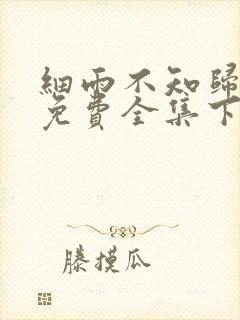 細雨不知歸
免費全集下
滕摸瓜